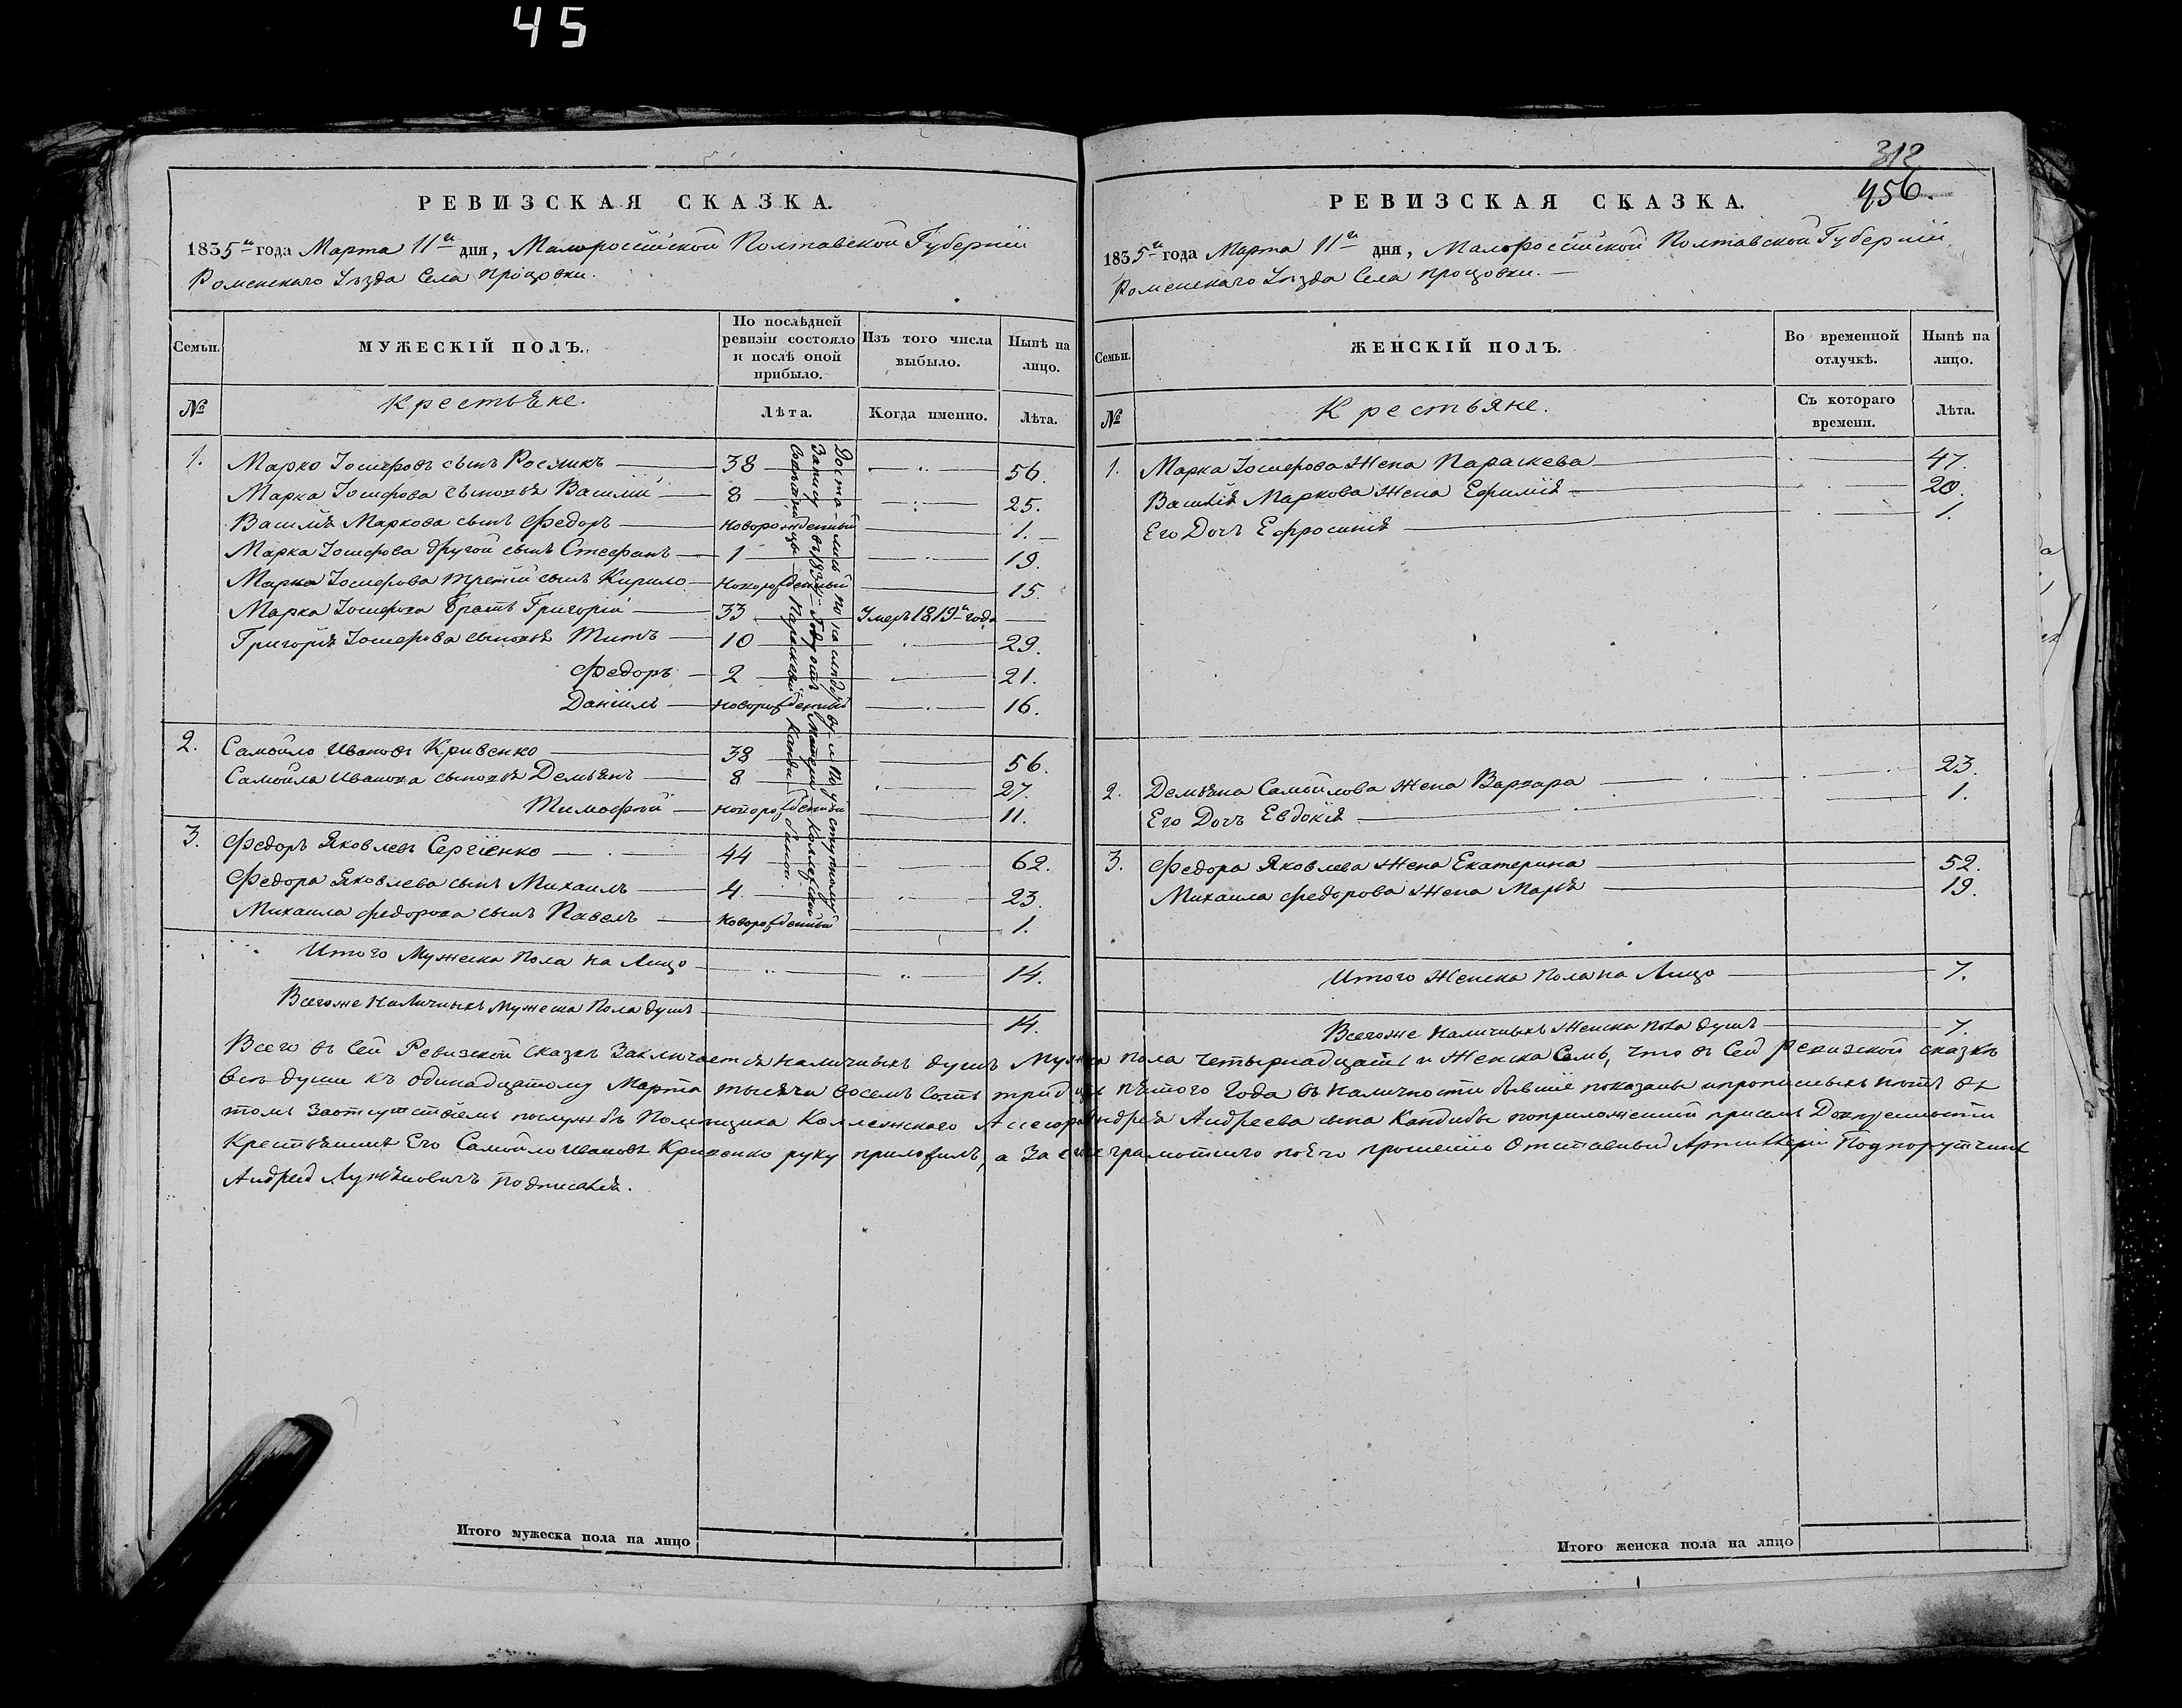 45
РЕВИЗСКАЯ СКАЗКА.
1835го года Марта 11го дня, Малороссійской Полтавской Губерніи
Роменскаго Уѣзда Села Процовки.
Семьи. МУЖЕСКІЙ ПОЛЪ. По послѣдней ревизіи состояло и послѣ оной прибыло. Изъ того числа выбыло. Нынѣ на лицо.
№ Крестьяне. Лѣта. Когда именно. Лѣта.
1. Марко Іосифовъ сынъ 38 56.
Марка Іосифова сыновья Василій 8 25.
Василія Маркова сынъ Федоръ Новорожденный 1.
Марка Іосифова другой сынъ Стефанъ 1 19.
Марка Іосифова третій сынъ Кирило Новорожденный 15.
Марка Іосифова братъ Григорій 33 Умеръ 1819го года
Григорія Іосифова сыновья Титъ 10 29.
Федоръ 2 21.
Даніилъ Новорожденный 16.
2. Самойло Ивановъ Кривенко 38 56.
Самойла Иванова сыновья Демьянъ 8 27.
Тимофѣй Новорожденный 11.
3. Федоръ Яковлевъ Сергіенко 44 62.
Федора Яковлева сынъ Михаилъ 4 23.
Михаила Федорова сынъ Павелъ Новорожденный 1.
Достались по наслѣдству и по уступному
Запису въ 1834 Году отъ Матери Коллежской
Параскевіи Кандибы
Итого Мужеска Пола на Лицо 14.
Всегоже Наличныхъ Мужеска Пола душъ 14.
Итого мужеска пола на лицо
312
456.
РЕВИЗСКАЯ СКАЗКА.
1835го года Марта 11го дня, Малороссійской Полтавской Губерніи
Роменскаго Уѣзда Села Процовки.
Семьи. ЖЕНСКІЙ ПОЛЪ. Во временной отлучкѣ. Нынѣ на лицо.
№ Крестьяне. Съ котораго времени. Лѣта.
1. Марка Іосифова Жена Параскева 47.
Василія Маркова Жена Ефимія 20.
Его Дочь Ефросинія 1.
2. Демьяна Самойлова Жена Варвара 23.
Его Дочь Евдокія 1.
3. Федора Яковлева Жена Екатерина 52.
Михаила Федорова Жена Марья 19.
Итого Женска Пола на Лицо 7.
Всегоже Наличныхъ Женска Пола душъ 7.
Всего въ Сей Ревизской Сказкѣ Заключается наличныхъ душъ Мужска пола четырнадцать и Женска Семь, что въ Сей ревизской сказкѣ
всѣ души къ одинадцатому Марта тысяча восемь сотъ тридцать пятого Года въ наличности бывшіе показаны и прописныхъ нѣтъ въ
томъ За отсутствіемъ по службѣ Помѣщика Коллежскаго Ассесора Андрея Андреева сына Кандибы по приложенной при семъ Довѣренности
Крестьянинъ Его Самойло Ивановъ Кривенко руку приложилъ, а За неграмотного по его прошенію Отставный Артиллеріи Подпорутчикъ
Андрей подписался.
Итого женска пола на лицо